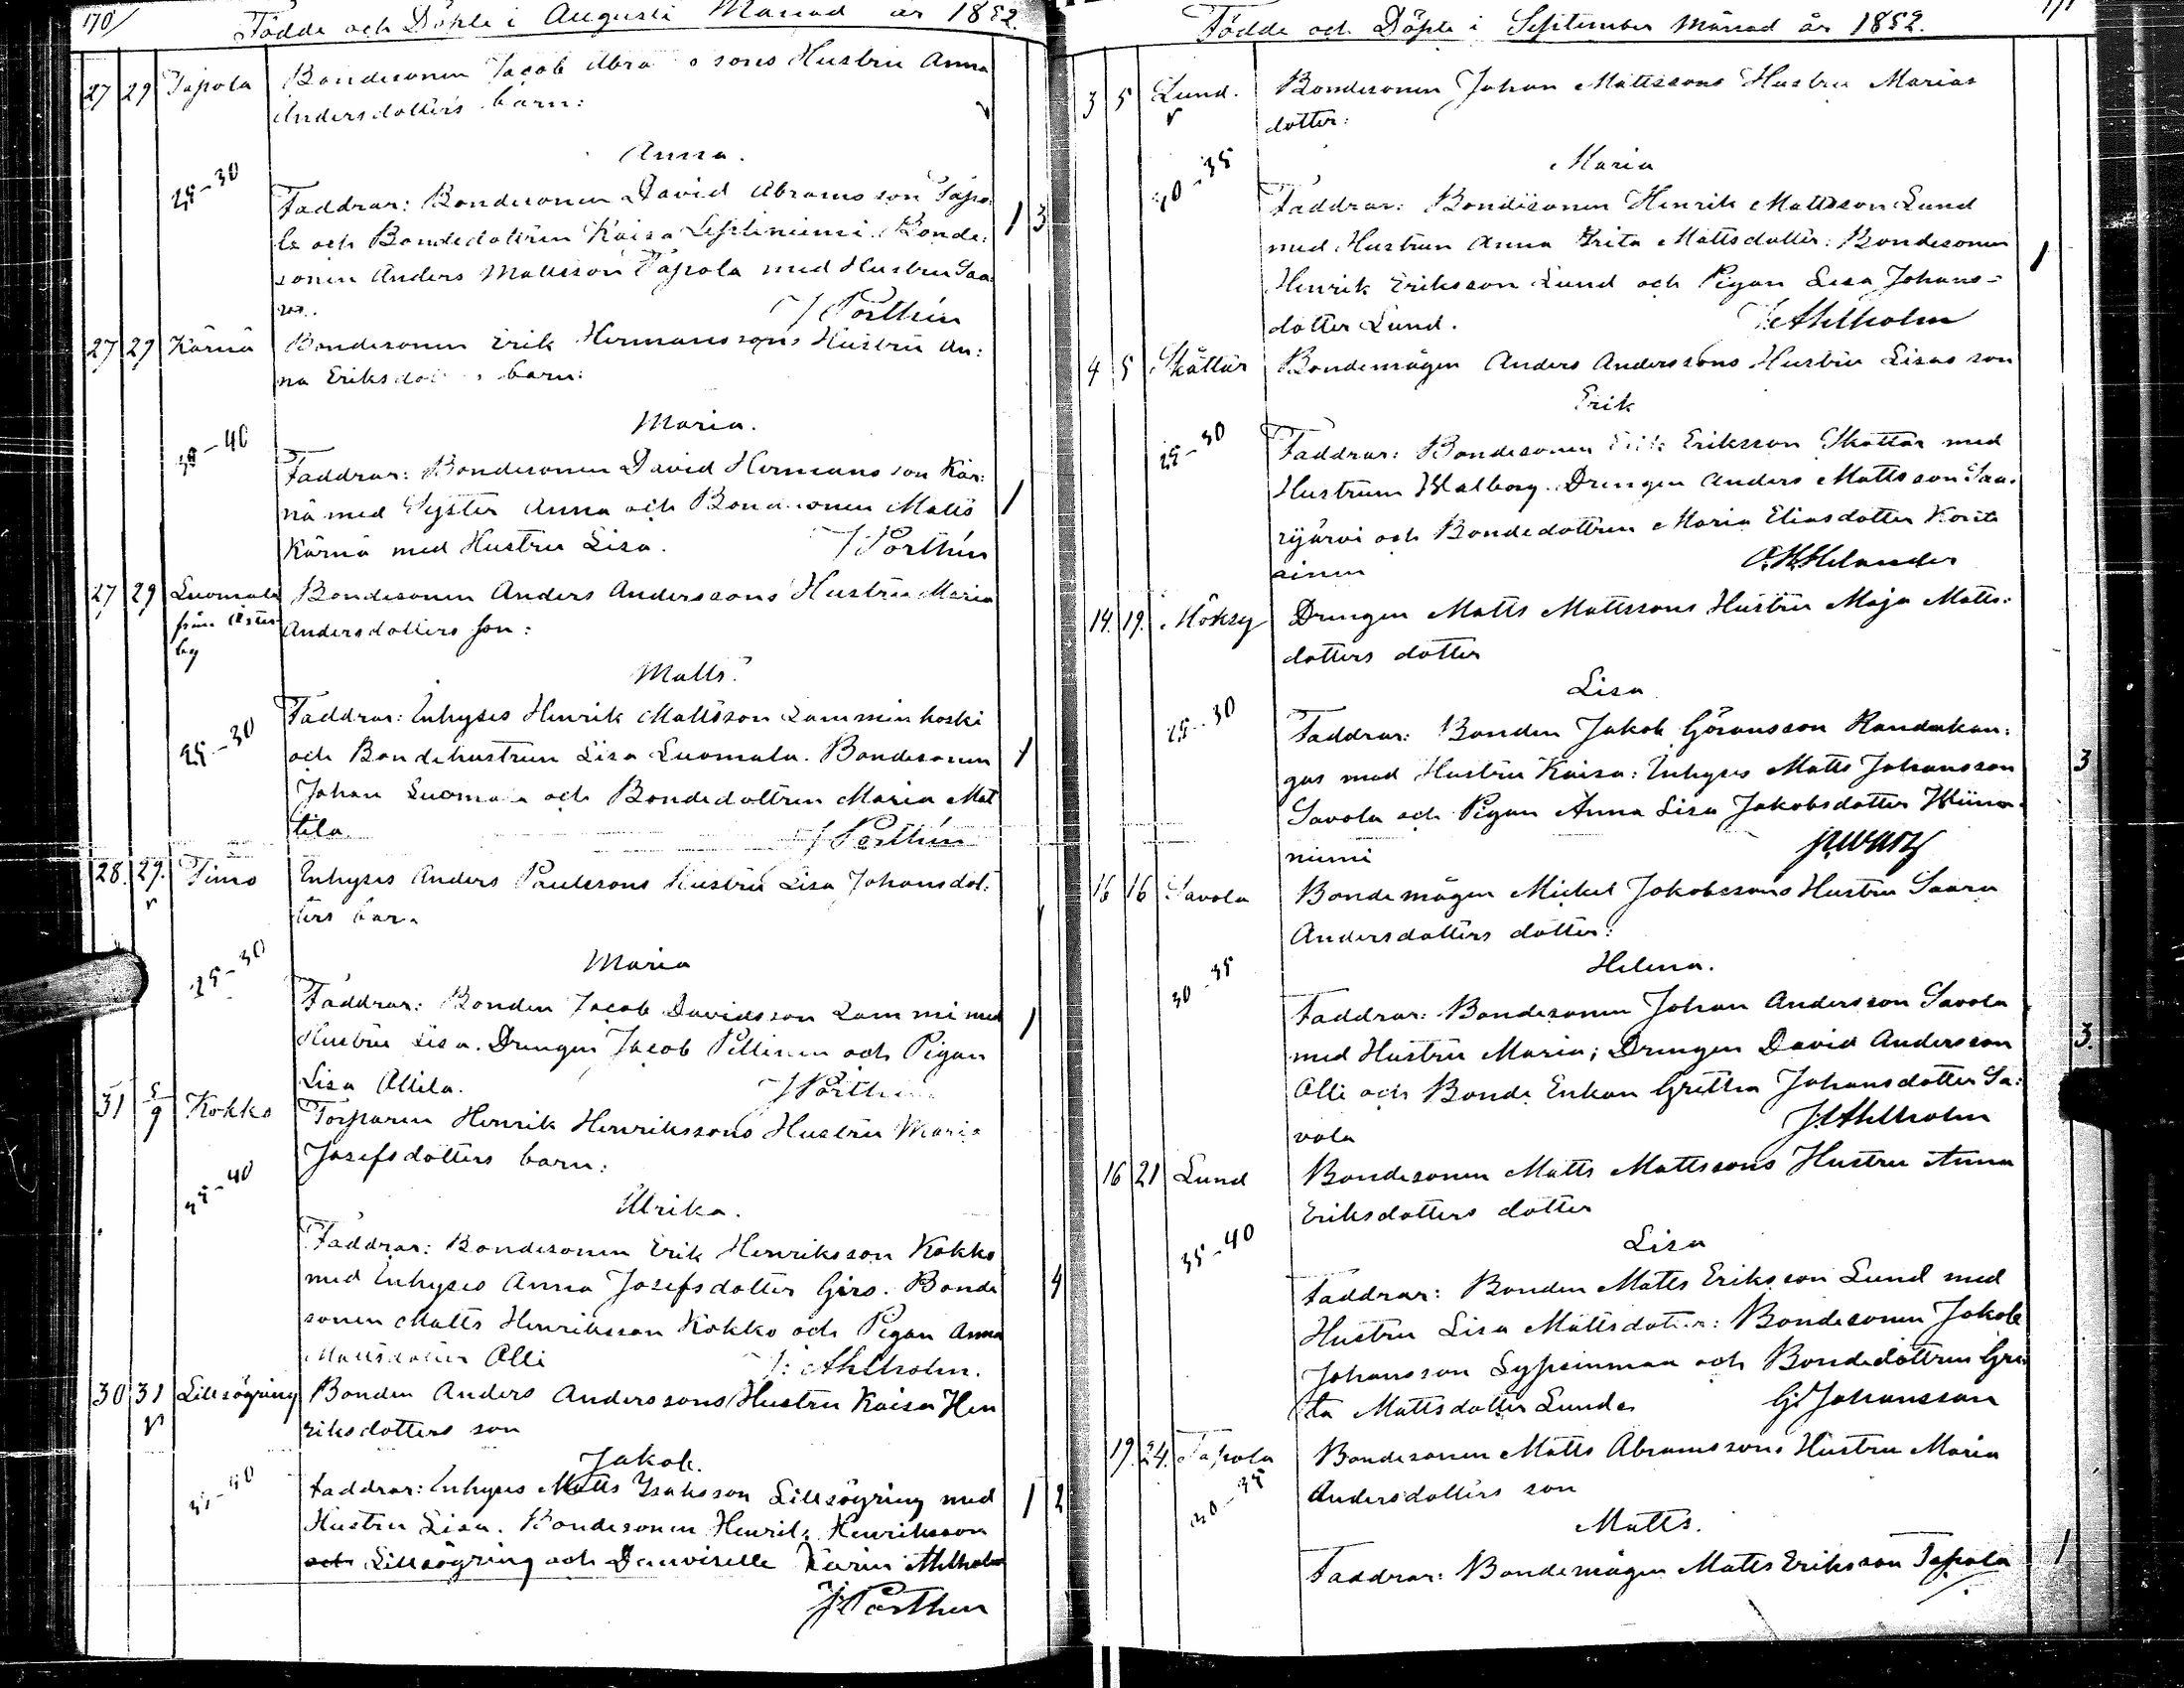 170/
Födde och Döpte i Augusti Månad år 1852.
27 29 Tapola Bondesonen Jacob Abra sons Hustru Anna
Andersdotters barn:
Anna.
25-30
Faddrar: Bondesonen David Abramsson Tapo:
la och Bondedottren Kaisa Leptiniemi. Bonde:
1 3
sonen Anders Mattsson Tapola med Hustru Saa
ra.
J Porthin
27 29 Kärnä Bondesonen Erik Hermanssons Hustru An:
na Eriksdot barn:
Maria.
-40
Faddrar: Bondesonen David Hermansson Kär:
nä med Syster Anna och Bondesonen Matts
1
Kärnä med Hustru Lisa.
J Porthin
27 29 Luomala Bondesonen Anders Anderssons Hustru Maria
från Öster
by
Andersdotters son:
Matts.
25-30
Faddrar: Inhyses Henrik Mattsson Lamminkoski
och Bondehustrun Lisa Luomala. Bondesonen
1
Johan Luomala och Bondedottren Maria Mat
tila.
J Porthin
28. 29. Timo Inhyses Anders Paulssons Hustru Lisa Johansdot:
ters barn
Maria
25-30
Faddrar: Bonden Jacob Davidsson Lammi med
1
Hustru Lisa. Drengen Jacob Pellinen och Pigan
Lisa Ollila.
J Porthin
31 5/9 Kokko Torparen Henrik Henrikssons Hustru Maria
Josefsdotters barn:
-40
Ulrika.
Faddrar: Bondesonen Erik Henriksson Kokko
med Inhyses Anna Josefsdotter Girs. Bonde
4
sonen Matts Henriksson Kokko och Pigan Anna
Mattsdotter Olli
J: Ahlholm.
30 31 Lillsögring Bonden Anders Anderssons Hustru Kaisa Hen
riksdotters son
Jakob.
-40
Faddrar: Inhyses Matts Isaksson Lillsögring med
1 2
Hustru Lisa. Bondesonen Henrik Henriksson
och Lillsögring och Demoiselle Karin Ahlholm
J Porthin
171
Födde och Döpte i September Månad år 1852.
3 5 Lund. Bondesonen Johan Mattssons Hustru Marias
dotter:
Maria
30-35
Faddrar: Bondesonen Henrik Mattsson Lund
med Hustrun Anna Brita Mattsdotter: Bondesonen
1
Henrik Eriksson Lund och Pigan Lisa Johans=
dotter Lund.
J Ahlholm
4 5 Skåttär Bondemågen Anders Anderssons Hustru Lisas son
Erik
25-30
Faddrar: Bondesonen Erik Eriksson Skattar med
Hustrun Walborg. Drengen Anders Mattsson Saa.
rijärvi och Bondedottren Maria Eliasdotter Korte
ainen
Helander
14. 19. Möksy Drengen Matts Mattssons Hustru Maja Matts:
dotters dotter
Lisa
25-30
Faddrar: Bonden Jakob Göransson Randakan:
gas med Hustru Kaisa: Inhyses Matts Johansson
3
Savola och Pigan Anna Lisa Jakobsdotter
niemi
16 16 Savola Bondemågen Mickel Jakobssons Hustru Saara
Andersdotters dotter:
Helena.
30-35
Faddrar: Bondesonen Johan Andersson Savola
med Hustru Maria; Drengen David Andersson
3.
Olli och Bonde Enkan Gretha Johansdotter Sa:
vola
J Ahlholm
16 21 Lund Bondesonen Matts Mattssons Hustru Anna
Eriksdotters dotter
Lisa
35-40
Faddrar: Bonden Matts Eriksson Lund med
Hustru Lisa Mattsdotter: Bondesonen Jakob
Johansson Sypeinmaa och Bondedottren Gre
ta Mattsdotter Lund
G. Johansson
19. 24. Tapola Bondesonen Matts Abramssons Hustru Maria
30-35
Andersdotters son
Matts.
Faddrar: Bondemågen Matts Eriksson Tapola
1